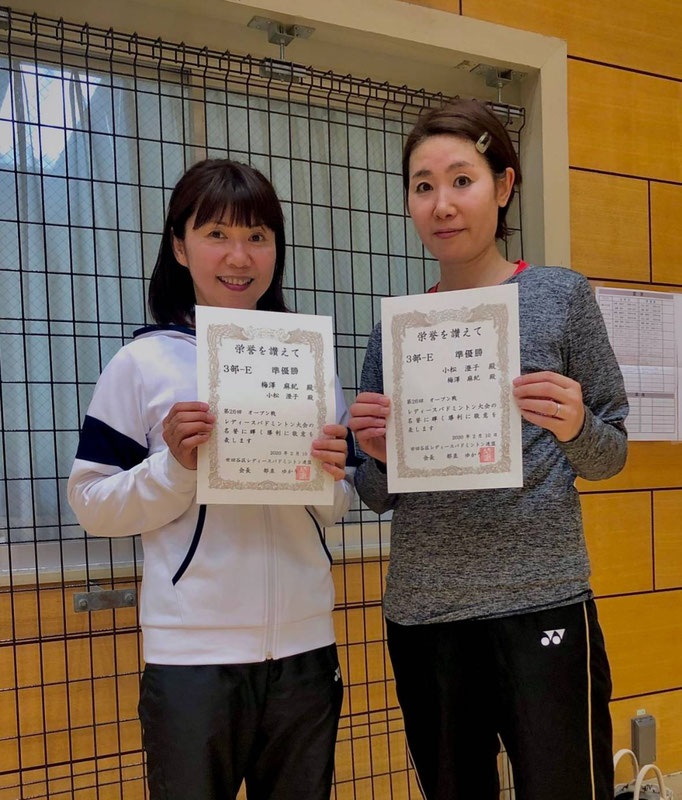 栄誉を讃えて
3部-E 準優勝
梅澤 麻紀 殿
小松 澄子 殿
第26回 オープン戦
レディースバドミントン大会の
名誉に輝く勝利に敬意を
表します
2020年2月10
世田谷区レディースバドミントン連盟
会長
栄誉を讃えて
3部-E 準優勝
小松 澄子 殿
梅澤 麻紀 殿
第26回 オープン戦
レディースバドミントン大会の
名誉に輝く勝利に敬意を
表します
2020年2月10日
世田谷区レディースバドミントン連盟
会長